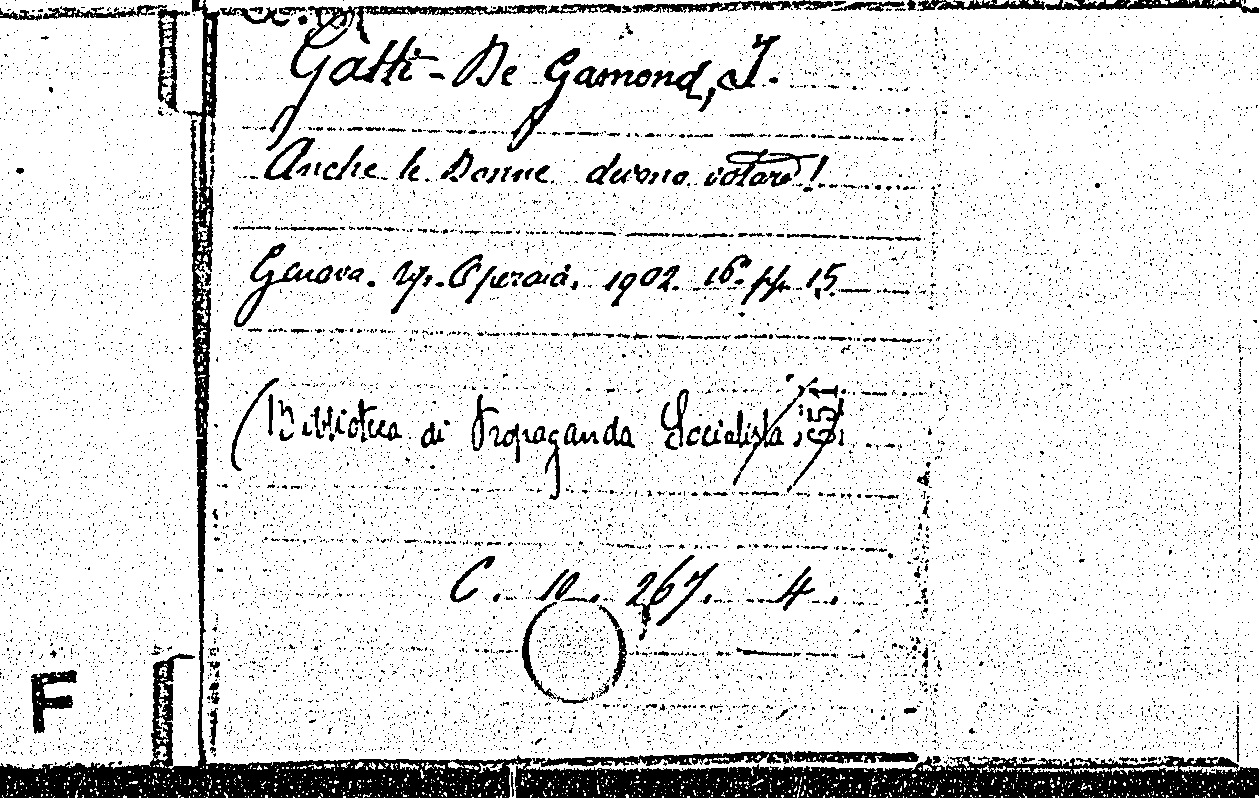 Gatti - De Gamond, I.
Anche le Donne devono votare!
Genova. Tip. Operaia. 1902. 16º pp. 15.
(Biblioteca di Propaganda Socialista
C. 10. 267. 4.
F